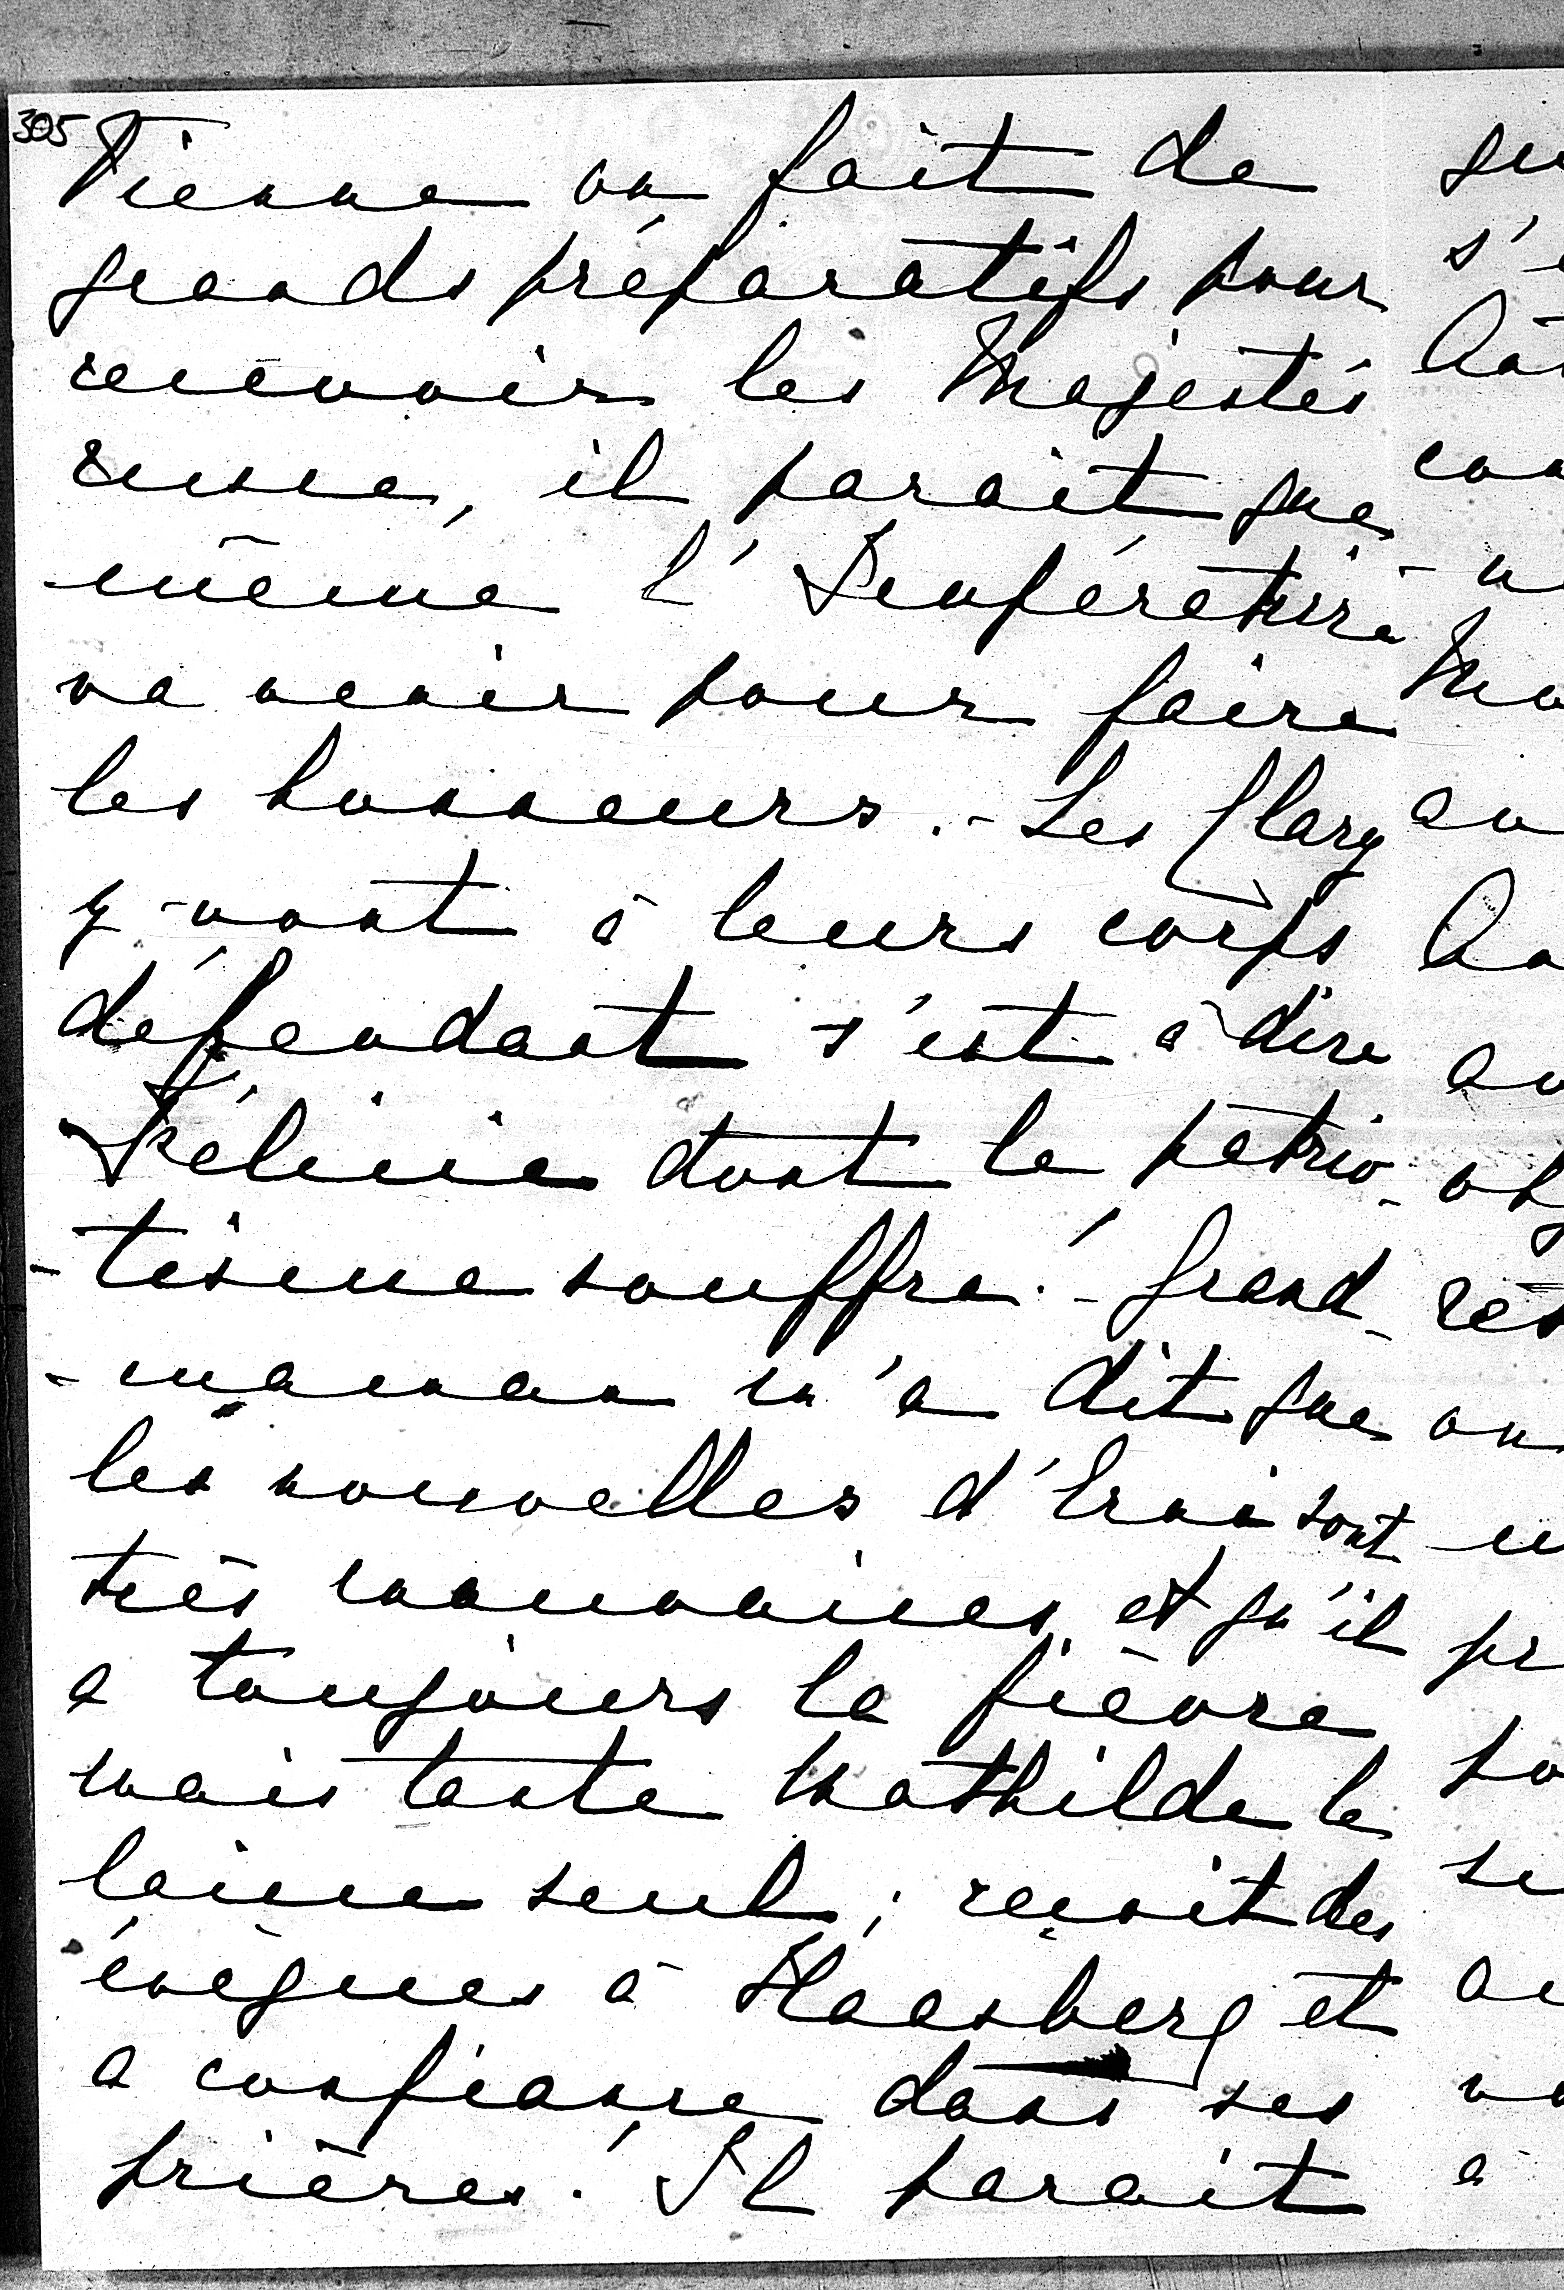 305
Vienne on fait de
grands préparatifs pour
recevoir les Majestés
russe, il parait que
même l'Impératrice
va venir pour faire
les honneurs. - Les Clary
y vont à leurs corps
défendant s'est à dire
Félicie dont le patrio-
-tisme souffre. - Grand-
-maman m'a dit que
les nouvelles d'Erni sont
très mauvaises et qu'il
a toujours la fièvre
mais tante Mathilde le
laisse seul; reçoit des
évêques à Haasberg et
a confiance dans ses
prières. Il parait